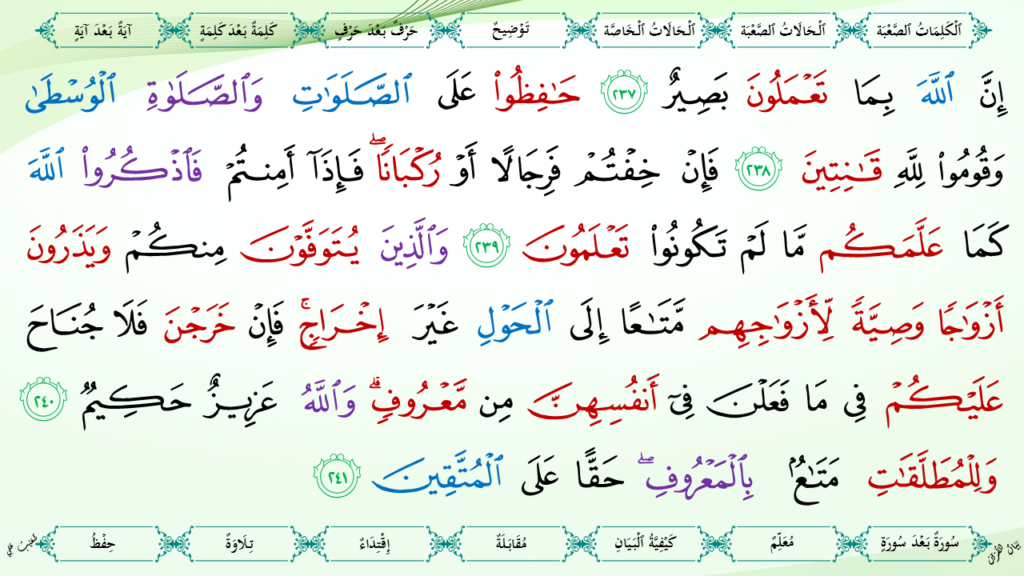 اَلْكَلِمَاتُ الصَّعْبَة اَلْحَالَاتُ الصَّعْبَة اَلْحَالَاتُ الْخَاصَّة تَوْضِيحٌ حَرْفٌ بَعْدَ حَرْفٍ كَلِمَةٌ بَعْدَ كَلِمَةٍ آيَةٌ بَعْدَ آيَةٍ
إِنَّ ٱللَّهَ بِمَا تَعْمَلُونَ بَصِيرٌ ٢٣٧ حَـٰفِظُوا۟ عَلَى ٱلصَّلَوَٰتِ وَٱلصَّلَوٰةِ ٱلْوُسْطَىٰ
وَقُومُوا۟ لِلَّهِ قَـٰنِتِينَ ٢٣٨ فَإِنْ خِفْتُمْ فَرِجَالًا أَوْ رُكْبَانًا ۖ فَإِذَآ أَمِنتُمْ فَٱذْكُرُوا۟ ٱللَّهَ
كَمَا عَلَّمَكُم مَّا لَمْ تَكُونُوا۟ تَعْلَمُونَ ٢٣٩ وَٱلَّذِينَ يُتَوَفَّوْنَ مِنكُمْ وَيَذَرُونَ
أَزْوَٰجًا وَصِيَّةً لِّأَزْوَٰجِهِم مَّتَـٰعًا إِلَى ٱلْحَوْلِ غَيْرَ إِخْرَاجٍ ۚ فَإِنْ خَرَجْنَ فَلَا جُنَاحَ
عَلَيْكُمْ فِى مَا فَعَلْنَ فِىٓ أَنفُسِهِنَّ مِن مَّعْرُوفٍ ۗ وَٱللَّهُ عَزِيزٌ حَكِيمٌ ٢٤٠
وَلِلْمُطَلَّقَـٰتِ مَتَـٰعٌۢ بِٱلْمَعْرُوفِ ۖ حَقًّا عَلَى ٱلْمُتَّقِينَ ٢٤١
سُورَةٌ بَعْدَ سُورَةٍ مُعَلِّمٌ كَيْفِيَّةُ الْبَيَانِ مُقَابَلَةٌ إِقْتِدَاءٌ تِلَاوَةٌ حِفْظُ